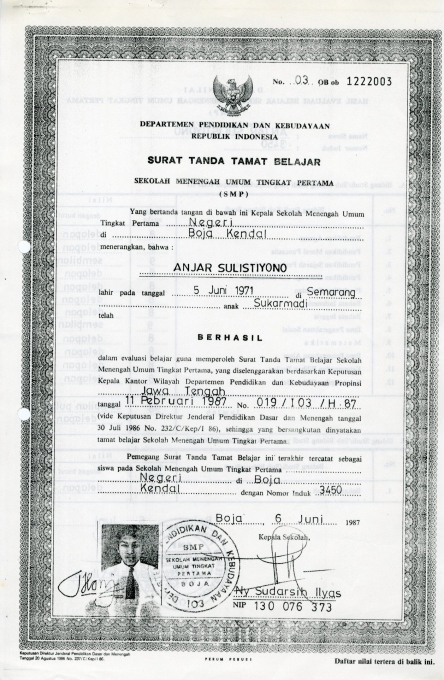 No. 03 OB ob 1222003
DEPARTEMEN PENDIDIKAN DAN KEBUDAYAAN
REPUBLIK INDONESIA
SURAT TANDA TAMAT BELAJAR
SEKOLAH MENENGAH UMUM TINGKAT PERTAMA
(SMP)
Yang bertanda tangan di bawah ini Kepala Sekolah Menengah Umum
Tingkat Pertama Negeri
di Boja Kendal
menerangkan, bahwa :
ANJAR SULISTIYONO
lahir pada tanggal 5 Juni 1971 di Semarang
anak Sukarmadi
telah
BERHASIL
dalam evaluasi belajar guna memperoleh Surat Tanda Tamat Belajar Sekolah
Menengah Umum Tingkat Pertama, yang diselenggarakan berdasarkan Keputusan
Kepala Kantor Wilayah Departemen Pendidikan dan Kebudayaan Propinsi
Jawa Tengah
tanggal 11 Pebruari 1987 No. 019/103/H.87
(vide Keputusan Direktur Jenderal Pendidikan Dasar dan Menengah tanggal
30 Juli 1986 No. 232/C/Kep/I 86), sehingga yang bersangkutan dinyatakan
tamat belajar Sekolah Menengah Umum Tingkat Pertama.
Pemegang Surat Tanda Tamat Belajar ini terakhir tercatat sebagai
siswa pada Sekolah Menengah Umum Tingkat Pertama
Negeri di Boja
Kendal dengan Nomor Induk 3450
Boja, 6 Juni 1987
Kepala Sekolah,
PENDIDIKAN DAN KEBUDAYAAN
SMP
SEKOLAH MENENGAH
UMUM TINGKAT
PERTAMA
BOJA
103
Ny Sudarsih Ilyas
NIP 130 076 373
Keputusan Direktur Jenderal Pendidikan Dasar dan Menengah
Tanggal 20 Agustus 1986 No. 220/C/Kep/I 86.
PERUM PERURI
Daftar nilai tertera di balik ini.